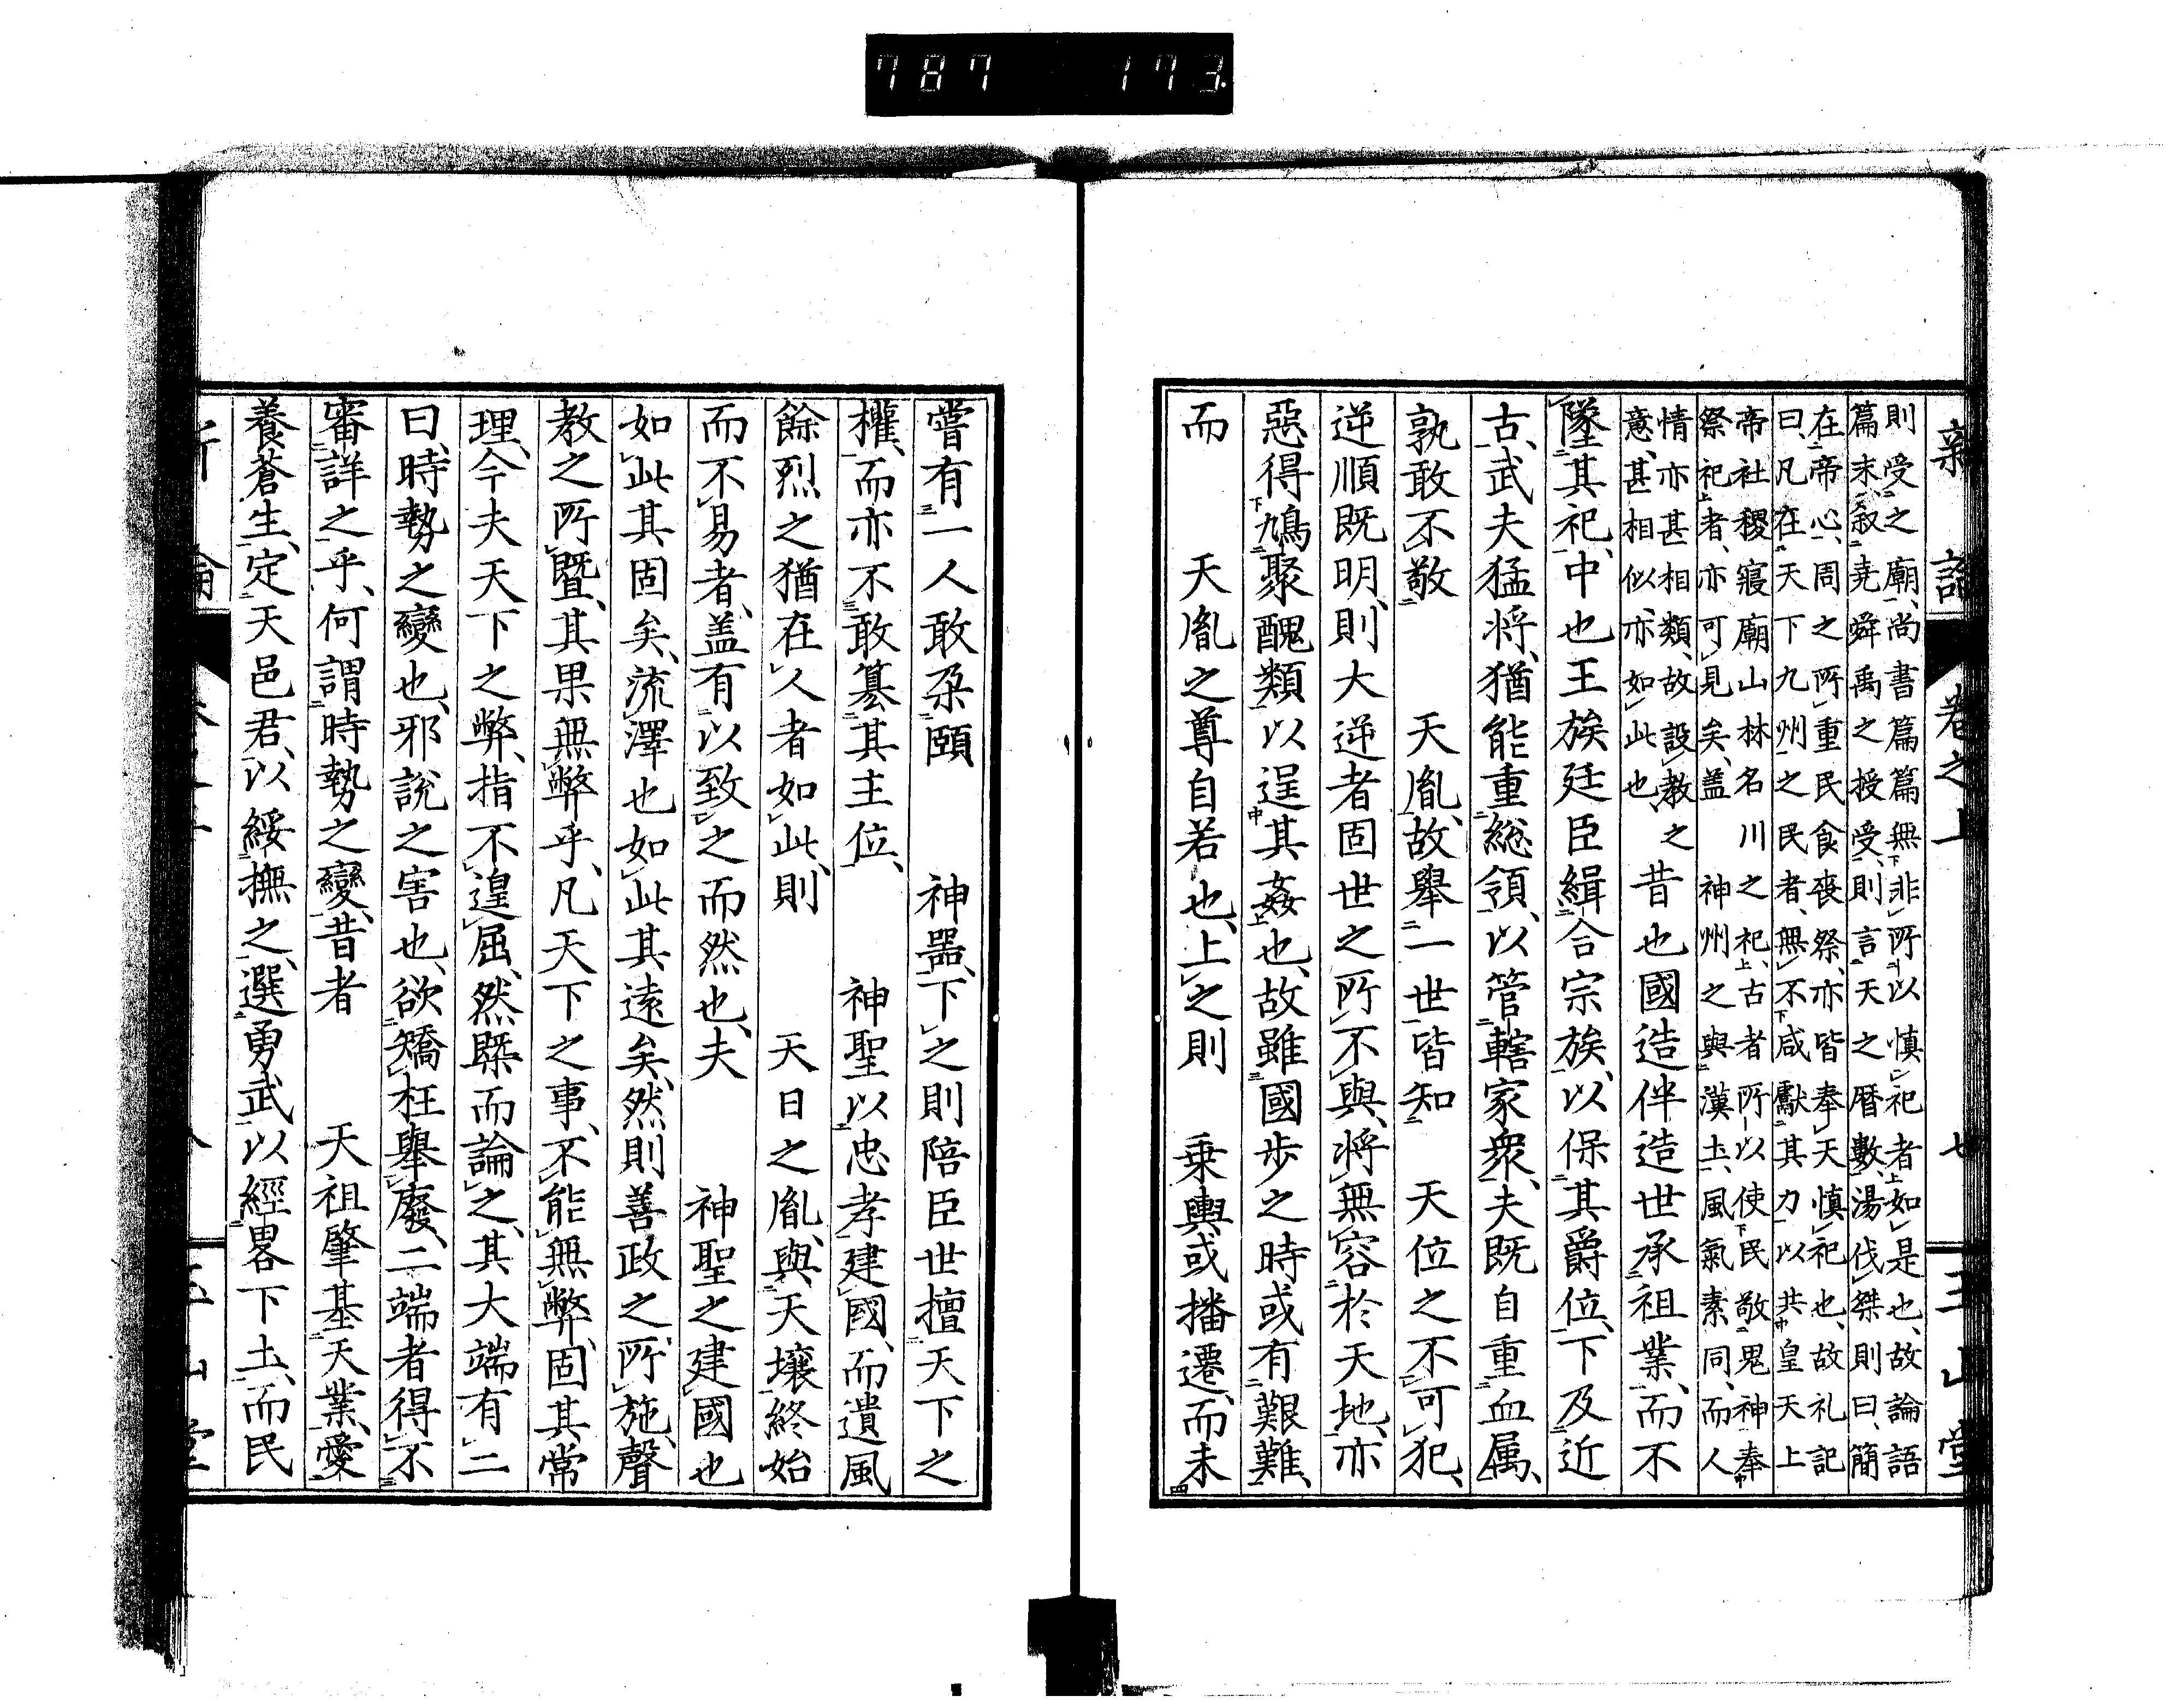 787 173
新論 卷之上 七 玉山堂
則受之廟、尚書篇篇無非所以慎祀者如是也、故論語
篇末、叙堯舜禹之授受、則言天之曆數、湯伐桀則曰、簡
在帝心、周之所重民食喪祭、亦皆奉天慎祀也、故礼記
曰、凡在天下九州之民者、無不咸獻其力以共皇天上
帝社稷寢廟山林名川之祀、古者所以使民敬鬼神奉
祭祀者、亦可見矣、盖 神州之與漢土、風氣素同、而人
情亦甚相類、故設教之
意、甚相似、亦如此也、
昔也國造伴造世承祖業、而不
墜其祀、中也王族廷臣緝合宗族、以保其爵位、下及近
古、武夫猛將、猶能重總領、以管轄家衆、夫既自重血属、
孰敢不敬 天胤、故舉一世皆知 天位之不可犯、
逆順既明、則大逆者固世之所不與、將無容於天地、亦
惡得鳩聚醜類以逞其姦也、故雖國步之時或有艱難、
而 天胤之尊自若也、上之則 乗輿或播遷、而未
嘗有一人敢朶頤 神器、下之則陪臣世擅天下之
權、而亦不敢簒其主位、 神聖以忠孝建國、而遺風
餘烈之猶在人者如此、則 天日之胤、與天壤終始
而不易者、盖有以致之而然也、夫 神聖之建國也
如此其固矣、流澤也如此其遠矣、然則善政之所施、聲
教之所曁、其果無弊乎、凡天下之事、不能無弊、固其常
理、今夫天下之弊、指不遑屈、然槩而論之、其大端有二
曰、時勢之變也、邪說之害也、欲矯枉舉廢、二端者得不
審詳之乎、何謂時勢之變、昔者 天祖肇基天業、愛
養蒼生、定天邑君、以綏撫之、選勇武以經畧下土、而民